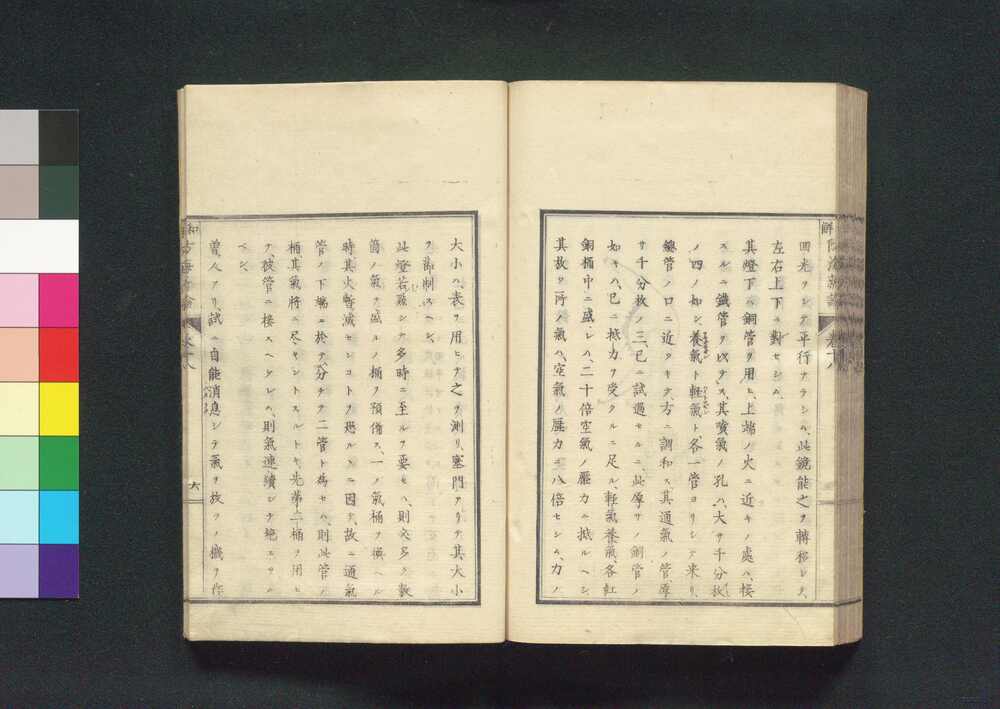 回光ヲシテ平行ナラシム、此鏡能之ヲ轉移シテ、
左右上下ニ對セシム、
其燈下ハ銅管ヲ用ヒ、上端ノ火ニ近キノ處ハ、接
スルニ鐵管ヲ以テス、其噴氣ノ孔ハ、大サ千分枚
ノ四ノ如シ、養氣ト輕氣ト、各一管ヨリシテ来リ、
總管ノ口ニ近ヅキテ、方ニ調和ス、其通氣ノ管厚
サ千分枚ノ三、已ニ試過セルニ、此厚サノ銅管ノ
如キハ、已ニ抵力ヲ受クルニ足ル、輕氣養氣、各紅
銅桶中ニ盛レハ、二十倍空氣ノ壓力ニ抵ルヘシ、
其放ツ所ノ氣ハ、空氣ノ壓力ニ八倍セシム、力ノ
大小ハ、表ヲ用ヒテ之ヲ測リ、塞門アリテ其大小
ヲ節制スヘシ、
此燈若シ點シテ多時ニ至ルヲ要セハ、則必多ク數
箇ノ氣ヲ盛ルノ桶ヲ預備ス、一ノ氣桶ヲ換ヘル
時其火暫ク滅センコトヲ恐ルヽニ因テ、故ニ通氣
管ノ下端ニ於テ、分チテ二管ト為セハ、則此管ノ
桶其氣將ニ尽キントスルトキ、先第二桶ヲ用ヒ
テ、彼管ニ接スヘクレハ、則氣連續シテ絶エサル
ベシ、
曽人アリ、試ニ自能消息シテ氣ヲ放ツノ機ヲ作
六